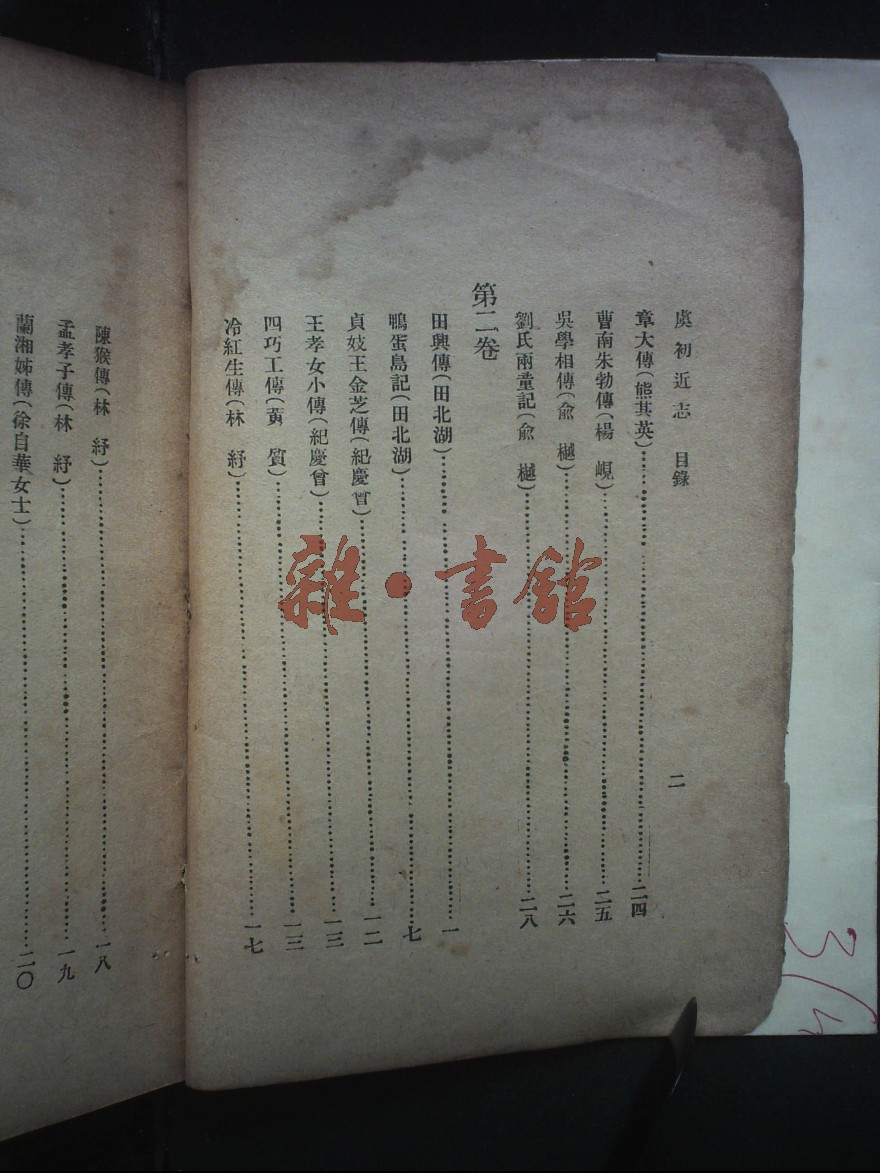 虞初近志　目錄
二
章大傳(熊其英)………二四
曹南朱勃傳(楊　峴)………二五
吳學相傳(俞　樾)………二六
劉氏兩童記(俞　樾)………二八
第二卷
田興傳(田北湖)………一
鴨蛋島記(田北湖)………七
貞妓王金芝傳(紀慶曾)………一二
王孝女小傳(紀慶曾)………一三
四巧工傳(黃　質)………一三
冷紅生傳(林　紓)………一七
陳猴傳(林　紓)………一八
孟孝子傳(林　紓)………一九
蘭湘姊傳(徐自華女士)………二〇
雜·書館
3/4